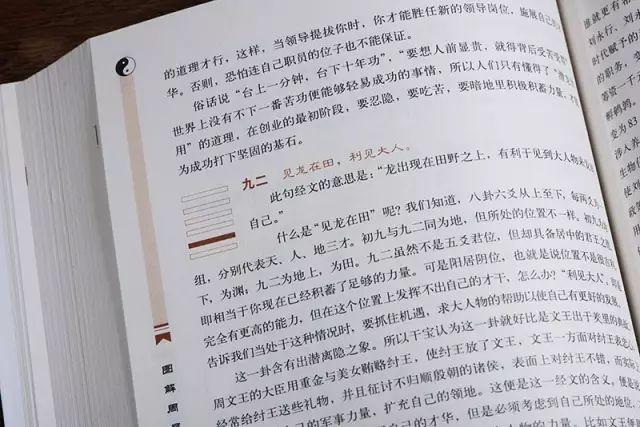 的道理才行，这样，当领导提拔你时，你才能胜任新的领导岗位，施展自己
华。否则，恐怕连自己职员的位子也不能保证。
俗话说“台上一分钟，台下十年功”，“要想人前显贵，就得背后受苦受
世界上没有不下一番苦功便能够轻易成功的事情，所以人们只有懂得了“潜
用”的道理，在创业的最初阶段，要忍隐，要吃苦，要暗地里积极积蓄力量，
为成功打下坚固的基石。
九二 见龙在田，利见大人。
此句经文的意思是：“龙出现在田野之上，有利于见到大人物来
自己。”
什么是“见龙在田”呢？我们知道，八卦六爻从上至下，每两爻
组，分别代表天、人、地三才。初九与九二同为地，但所处的位置不一样。初九
下，为渊，九二为地上，为田。九二虽然不是五爻君位，但却具备居中的君王之
即相当于你现在已经积蓄了足够的力量。可是阳居阴位，也就是说位置不是很
完全有更高的能力，但在这个位置上发挥不出自己的才干，怎么办？“利见大人”，
告诉我们当处于这种情况时，要抓住机遇，求大人物的帮助以使自己有更好的发展。
这一卦含有出潜离隐之象。所以干宝认为这一卦就好比是文王出于羑里的
周文王的大臣用重金与美女贿赂纣王，使纣王放了文王，文王一方面对纣王
经常给纣王送些礼物，并且征讨不归顺殷朝的诸侯，表面上对纣王不错，而实
己的军事力量，扩充自己的领地。这便是这一经文的含义，便是
自己的才华，但是必须考虑到自己所处的地位，
比如文王
图解周
谁就更有
刘永行、刘永
时代赋予的
的职务，变
等谎一千
鹌鹑。
变为83
涉人养
生物